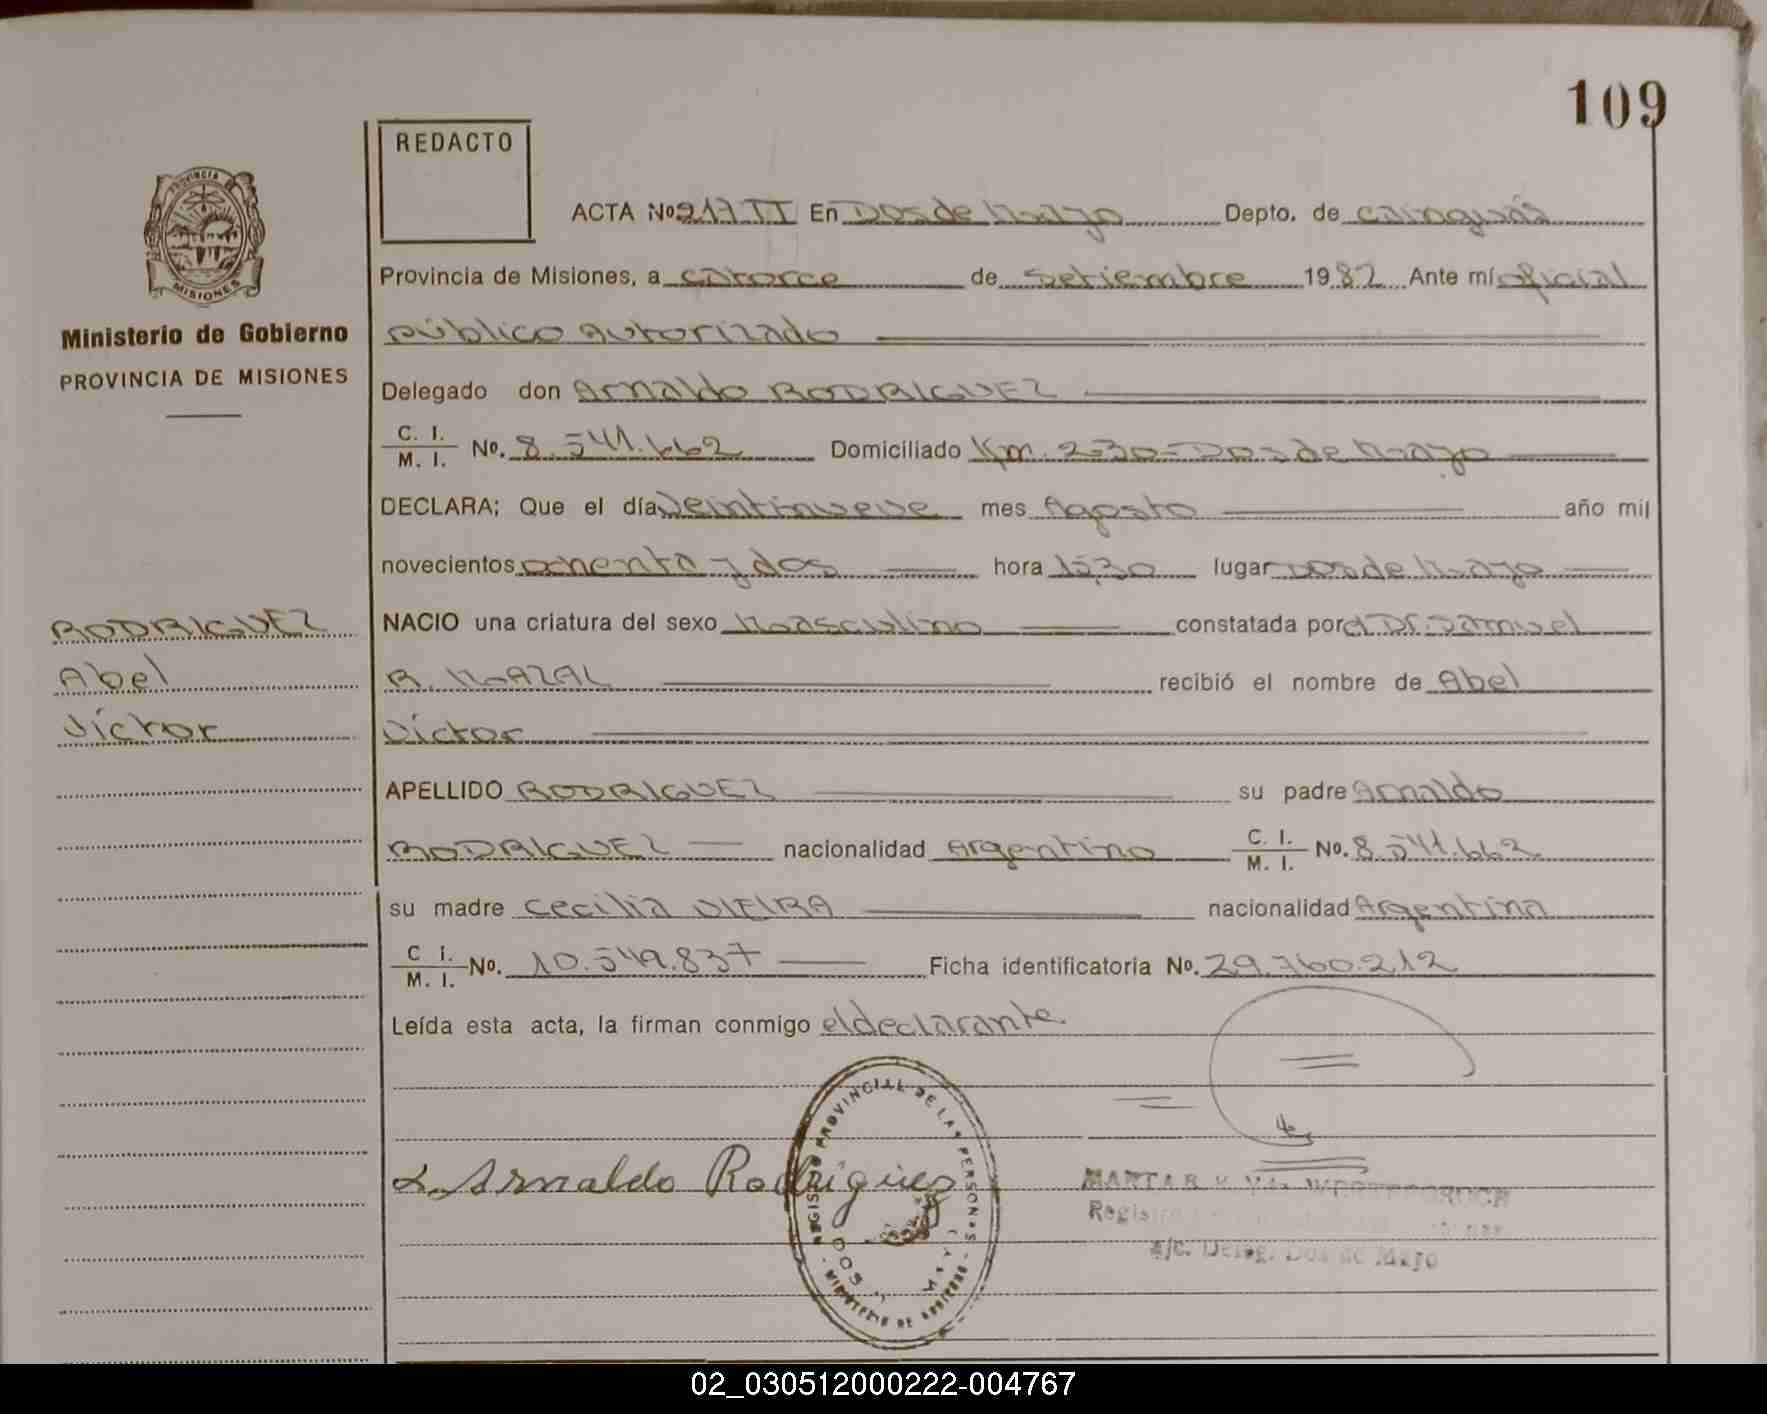 109
REDACTO
PROVINCIA DE
MISIONES
Ministerio de Gobierno
PROVINCIA DE MISIONES
ACTA No 217 II En Dos de Mayo Depto. de Cainguás
Provincia de Misiones, a catorce de setiembre 1982 Ante mí oficial
público autorizado
Delegado don Arnaldo RODRIGUEZ
C. I.
M. I. No. 8.541.662 Domiciliado Km. 230-Dos de Mayo
DECLARA; Que el día veintinueve mes Agosto año mil
novecientos ochenta y dos hora 15,30 lugar Dos de Mayo
RODRIGUEZ
Abel
Víctor
NACIO una criatura del sexo Masculino constatada por el Dr. Samuel
R. MAZAL recibió el nombre de Abel
Víctor
APELLIDO RODRIGUEZ su padre Arnaldo
RODRIGUEZ nacionalidad Argentino C. I.
M. I. No. 8.541.662
su madre Cecilia VIEIRA nacionalidad Argentina
C I.
M. I. No. 10.549.837 Ficha identificatoria No. 29.760.212
Leída esta acta, la firman conmigo el declarante.
Arnaldo Rodriguez
REGISTRO PROVINCIAL DE LAS PERSONAS
MINISTERIO DE GOBIERNO
DOS MAYO
MARTA
a/c. Deleg. Dos de Mayo
02_030512000222-004767